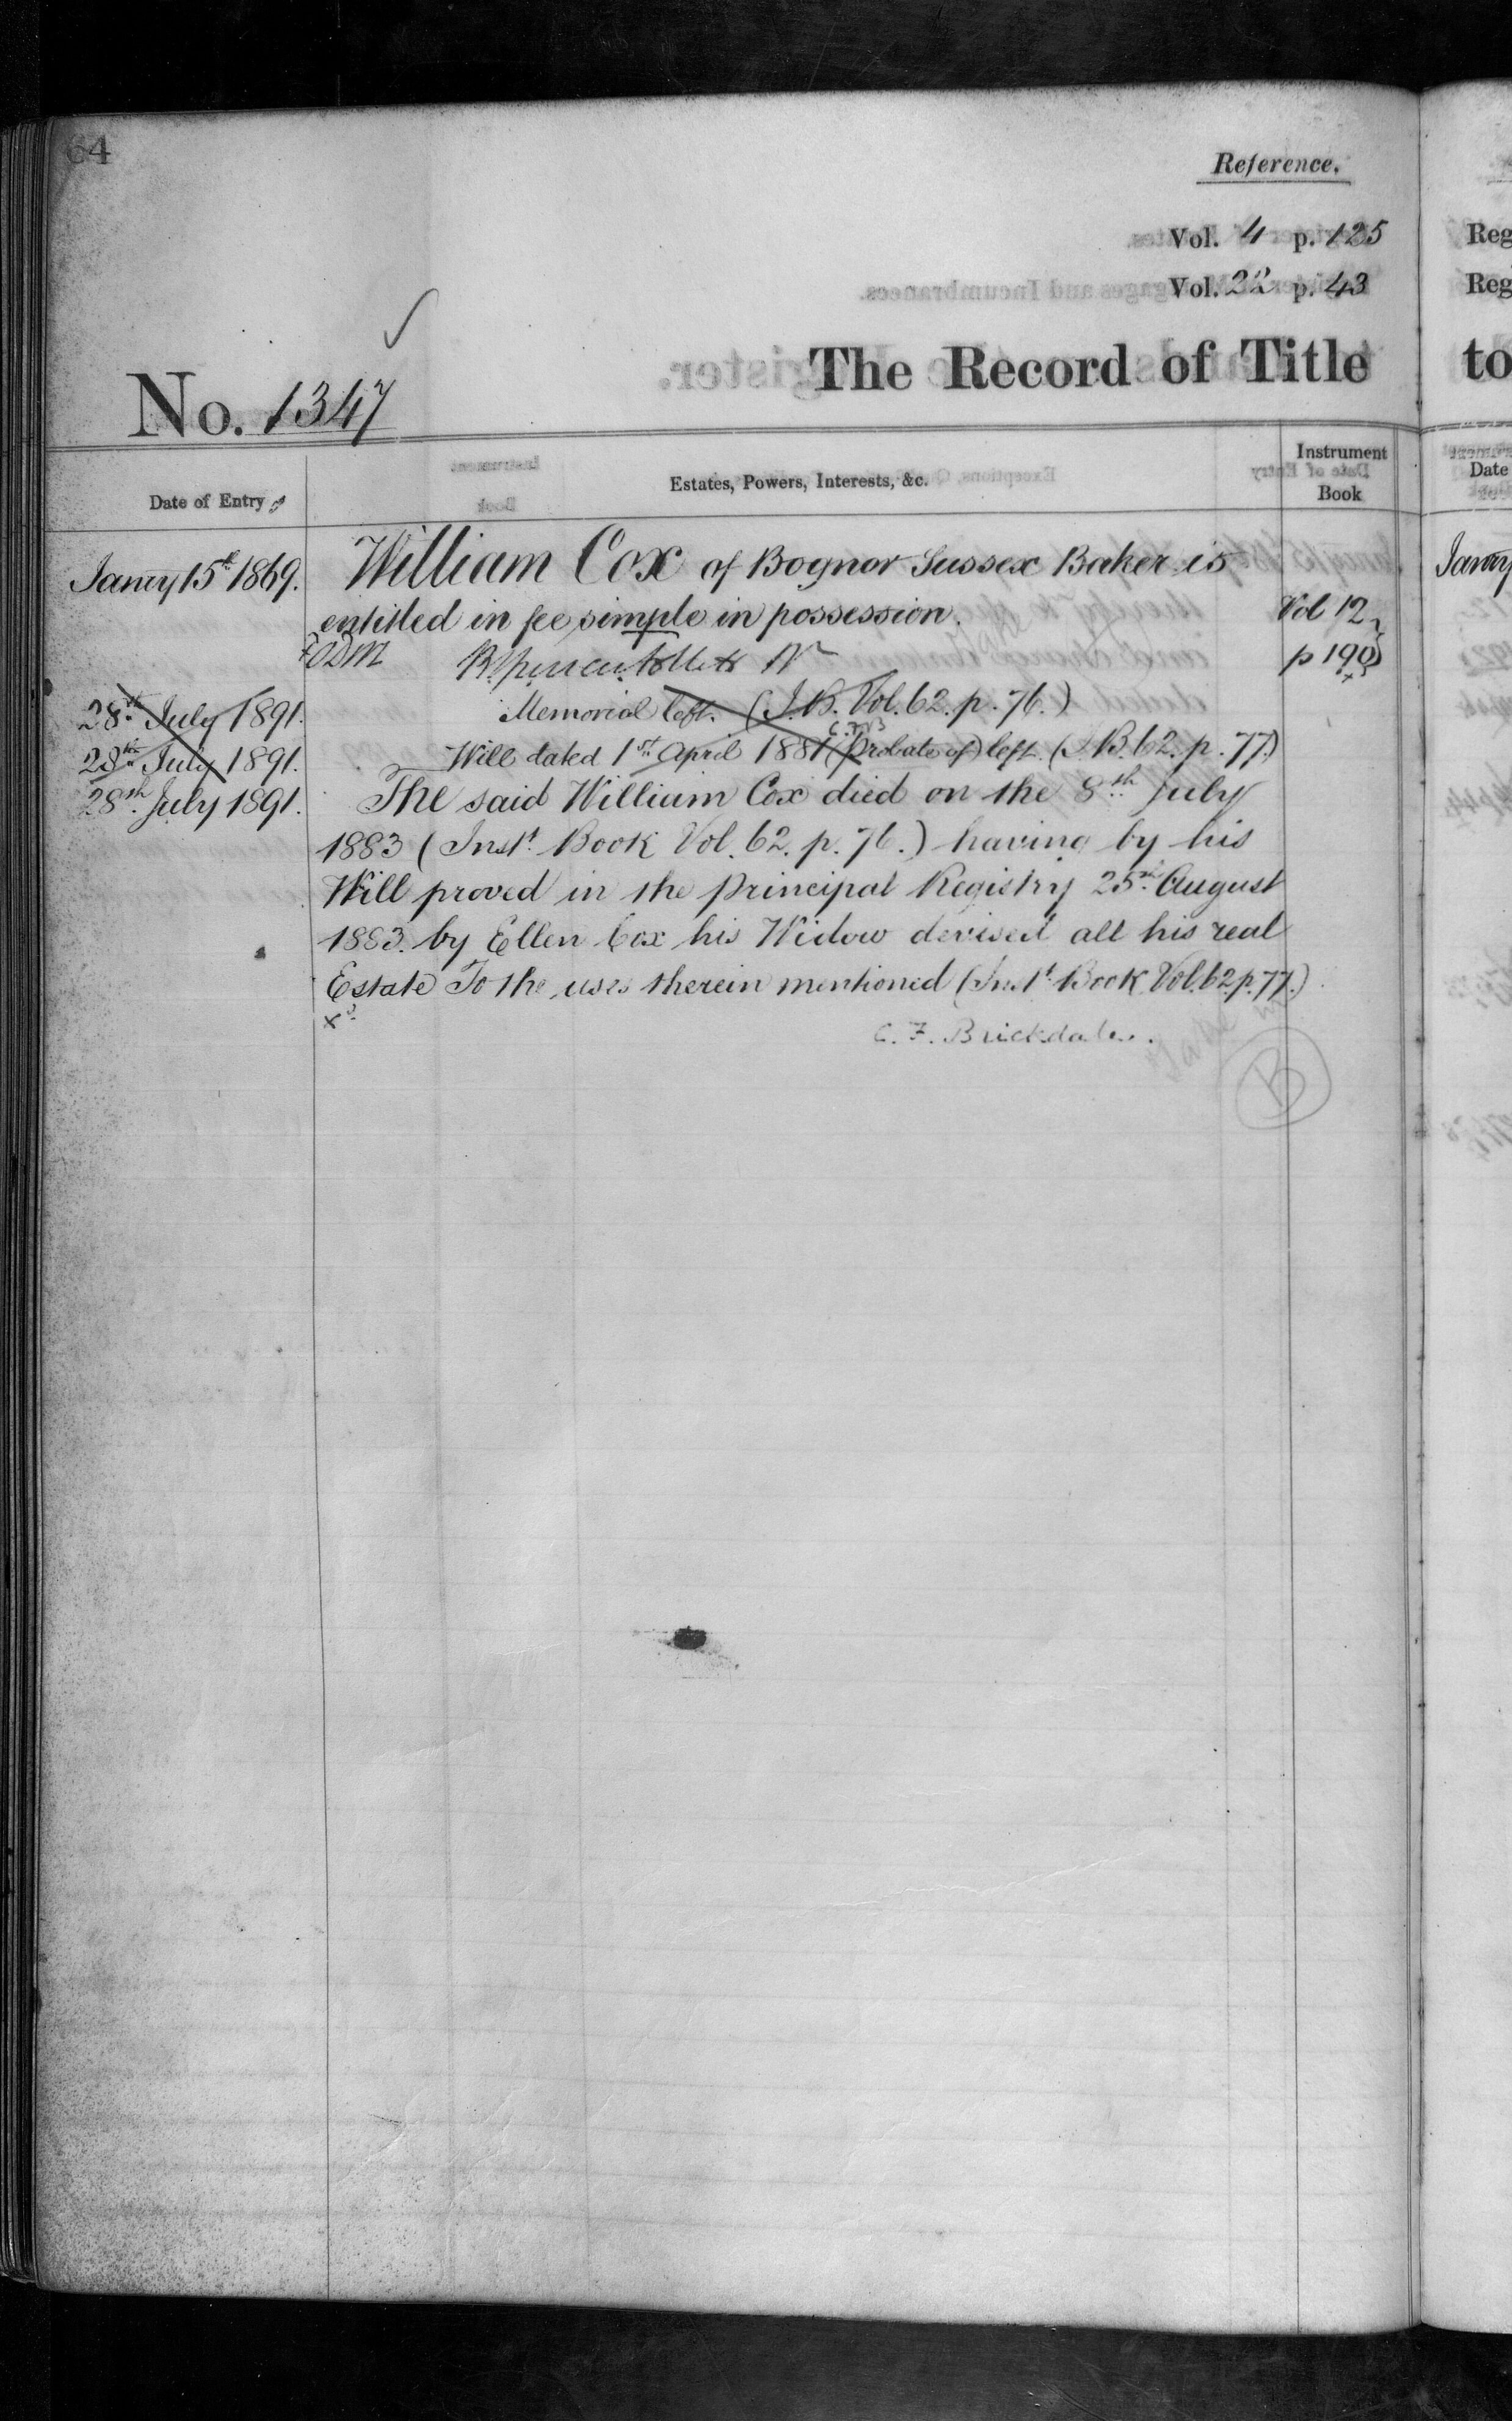 64
Reference.
Vol. 4 p. 125
Vol. 22 p. 43
No. 1347
The Record of Title
Date of Entry
Estates, Powers, Interests, &c.
Instrument
Book
Jany 15th 1869.
William Cox of Bognor Sussex Baker is
entitled in fee simple in possession.
Vol 12
p 190
28th July 1891.
Memorial left. (I.B. Vol. 62. p. 76.)
28th July 1891.
Will dated 1st April 1881 (probate of) left. (I.B. 62. p. 77.)
28th July 1891.
The said William Cox died on the 8th July
1883 (Inst. Book Vol. 62. p. 76.) having by his
Will proved in the Principal Registry 25th August
1883. by Ellen Cox his Widow devised all his real
Estate To the uses therein mentioned (Inst. Book Vol. 62 p. 77.)
C. F. Brickdale.
B
Reg
Reg
to
Date
Jany